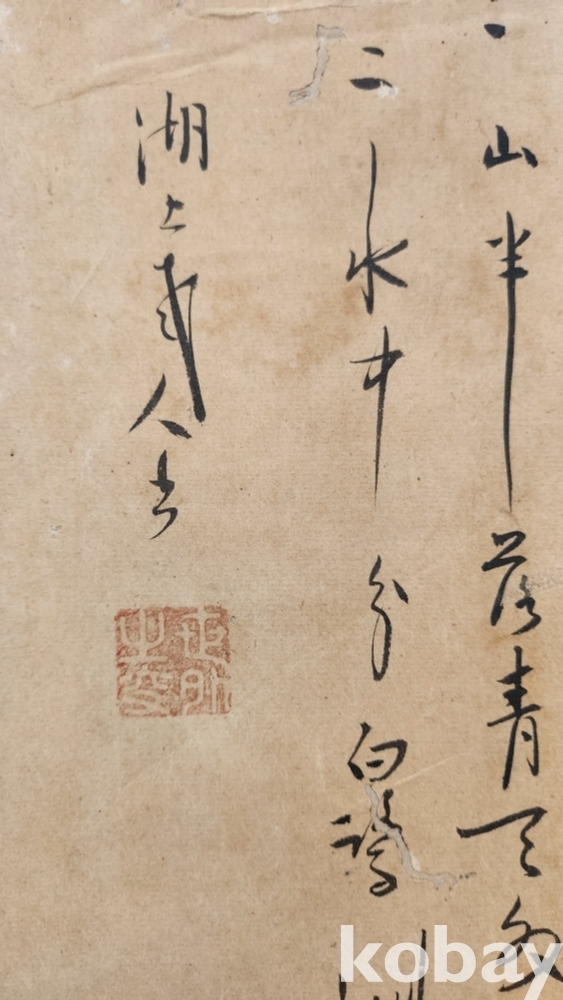 山半落青天外
二水中分白鷺洲
湖上人書
kobay